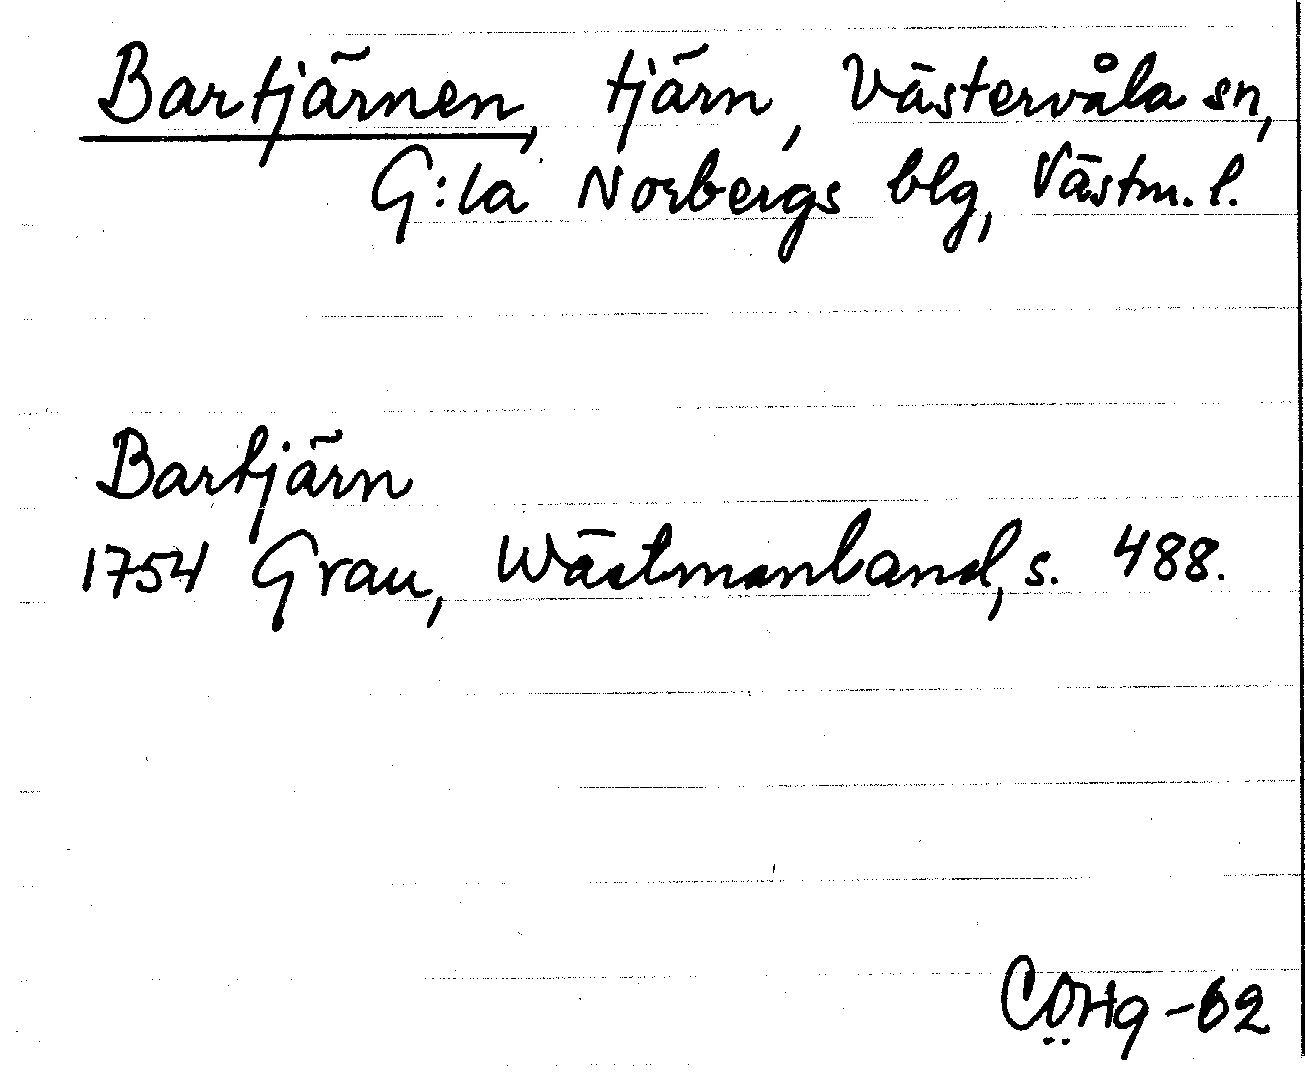 Bartjärnen, tjärn, Västervåla sn,
G:la Norbergs blg, Västm. l.
Bartjärn
1754 Grau, Wästmanland, s. 488.
CÖHg -62